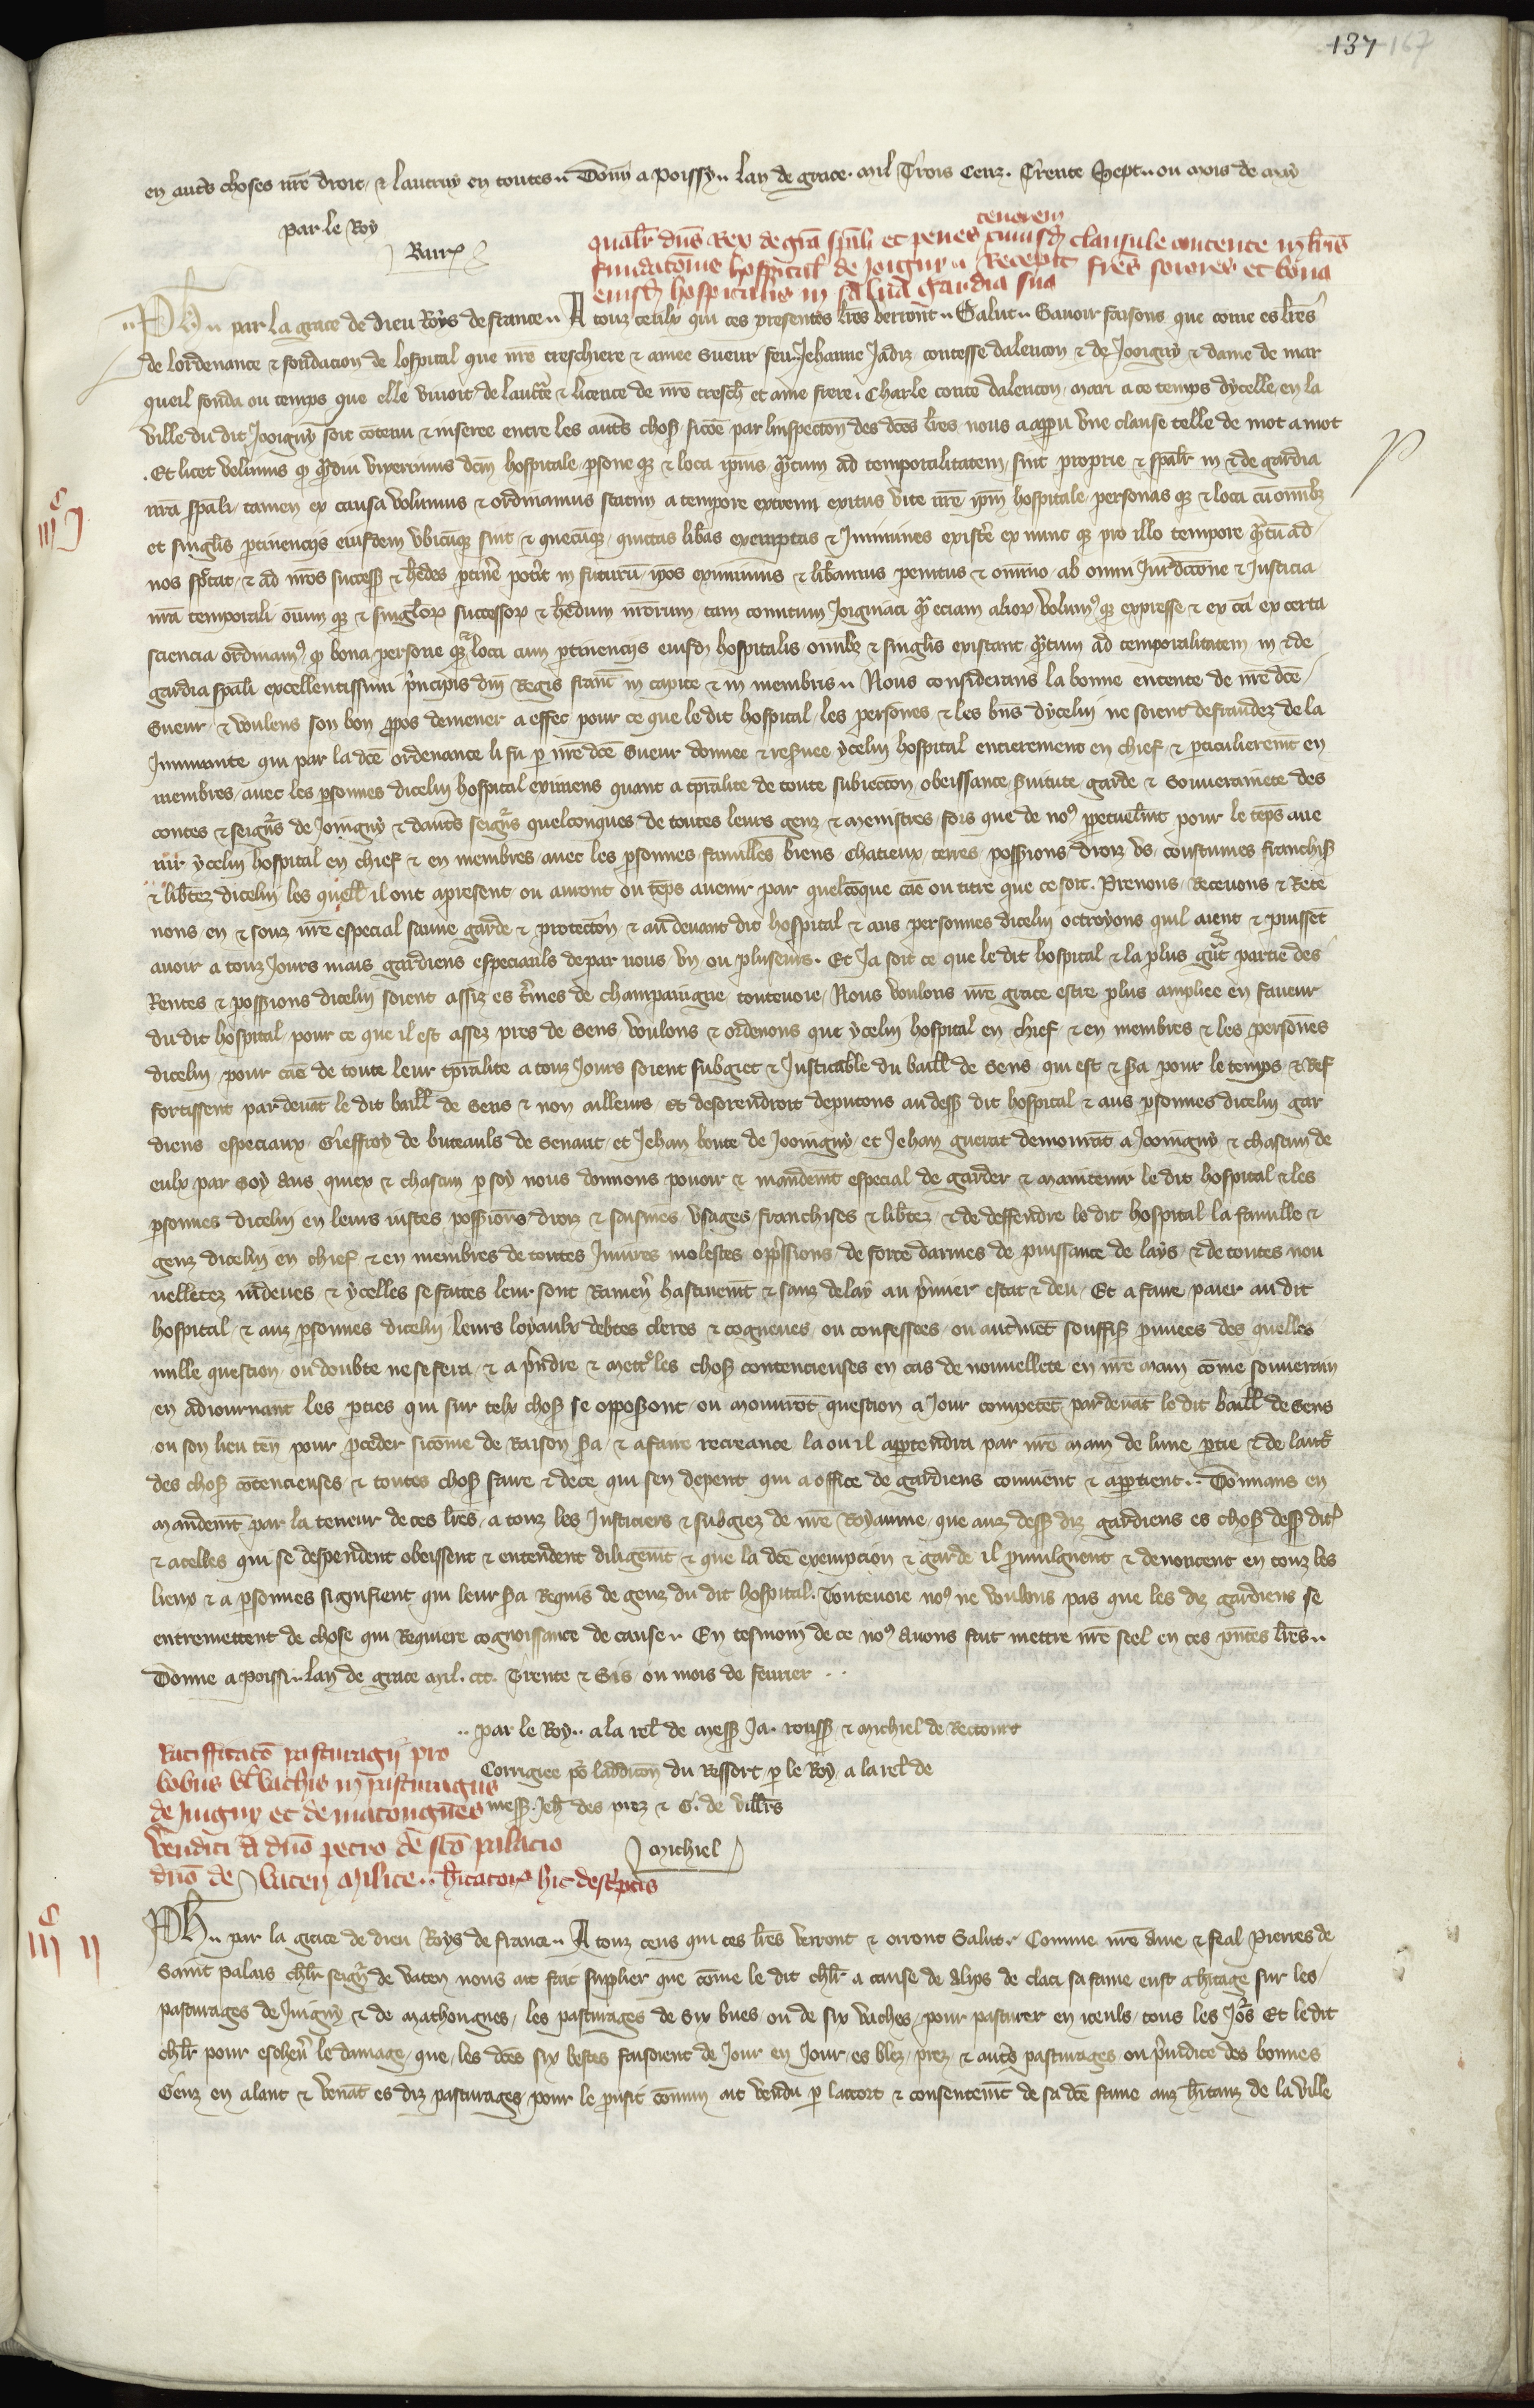 137 167
en autres choses nr̄e droit, & lautruy en toutes.. Donn̄ a poissy.. lan de grace. mil Trois Cenz. Trente Sept.. ou mois de may
par le Roy
tenorem
qualr̄ dn̄s Rex de gr̄a sp̄ali et penes cuiusd̄ clausule contente in lr̄is
fundatōnis hospital̄ de Joigny.. Recepit fr̄es sorores et bona
eiusd̄ hospitalis in salua gardia sua
Ph̄.. par la grace de dieu Roys de france.. A touz ceulx qui ces presentes lr̄es verront.. Salut.. Sauoir faisons que come es lr̄es
de lordenance & fondacion de lospital que nr̄e treschiere & amee Sueur feu.. Jehanne Jadiz contesse dalencon & de Jooigny & dame de mar
queil fonda ou temps que elle viuoit, de lauctē & licence de nr̄e tresch̄ et ame frere. Charle conte dalencon, mari a ce temps dycelle, en la
ville du dit Jooigny soit cōtenu & inseree entre les autr̄s chos̄ sicōe par linspectōn des dc̄es lr̄es nous a apparu vne clause telle de mot a mot
. Et licet velimus q̄ q̄mdiu vixerimus dc̄m hospitale, p̄sone q̄ & loca ip̄ius, q̄ntum ad temporalitatem, sint proprie & sp̄alr̄ in & de gardia
nr̄a sp̄ali, tamen ex causa volumus & ordinamus statim a tempore extremi exitus vite nr̄e ip̄m hospitale, personas q̄ & loca cū om̄ibȝ
et singlīs p̄tinencijs eiusdem vbicūq̄ sint & quecūq̄, quittas lib̄as exemptas & Jmmunes existe ex nunc q̄ pro illo tempore q̄ntū ad
nos sp̄ctat, & ad nr̄os success̄ & h̄edes p̄tinē pot̄it in futurū, ip̄os eximimus & lib̄amus penitus & om̄ino, ab omni Jur̄dictione & Justicia
nr̄a temporali, oīum q̄ & singlor̄ successor̄ & h̄edum nr̄orum, tam comitum Joigniaci q̄ eciam alior̄, volum⁹ q̄ expresse & ex cā ex certa
sciencia ordinam⁹, q̄ bona persone q̄ loca cum p̄tinencijs eiusd̄ hospitalis om̄ibȝ & singlīs existant q̄ntum ad temporalitatem in & de
gardia sp̄ali excellentissimi p̄ncipis dn̄i Regis franc̄ in capite & in membris.. Nous considerans la bonne entente de nr̄e dc̄e
Sueur, & voulens son bon p̄pos demener a effet pour ce que le dit hospital, les persones & les bn̄s dycelui ne soient defraudez de la
Jmmunite qui par la dc̄e ordenance li fu p̄ nr̄e dc̄e Sueur donnee & res̄uee, ycelui hospital entierement en chief & p̄ticulierem̄t en
membres, auec les p̄sonnes dicelui hospital eximens quant a tp̄ralite de toute subiectōn, obeissance, s̄uitute, garde & Souuerainete des
contes & seign̄rs de Joingny & dautr̄s seign̄rs quelconques de toutes leurs genz & menistres, fors que de no⁹, p̄petuelm̄t pour le tēps aue
nir ycelui hospital en chief & en membres auec les p̄sonnes, familles, biens, chatieux, terres, poss̄ions, droiz, vs, coustumes, franchis̄
& lib̄tez dicelui les quell̄ il ont apresent ou auront ou tēps auenir par quelcōque cāe ou titre que ce soit. Prenons, Receuons & Rete
nons en & souz nr̄e especial sauue garde & protectōn, & au deuant dit hospital & aus personnes dicelui octroyons quil aient & puissēt
auoir a touz Jours mais gardiens especiauls de par nous, vn ou pluseurs. Et Ja soit ce que le dit hospital & la plus gr̄t partie des
Rentes & poss̄ions dicelui soient assiz es t̄mes de champaingne, toutevoie, Nous voulons nr̄e grace estre plus ampliee en faueur
du dit hospital, pour ce que il est assez pres de Sens, voulons & ordenons que ycelui hospital en chief & en membres & les persōnes
dicelui, pour cāe de toute leur tp̄ralite a touz Jours soient subgiet & Justicable du baill̄ de Sens, qui est & s̄a pour le temps, & Res
sortissent par deuāt le dit baill̄ de Sens & non ailleurs, Et desorendroit deputons au dess̄ dit hospital & aus p̄sonnes dicelui gar
diens especiaux, Gieffroy de buteauls de Senant, et Jehan bonte de Jooingny, et Jehan guerat demourāt a Jooingny & chascun de
eulx par Soy, Aus quiex & chascun p̄ soy nous donnons pouoir & mandem̄t especial de garder & maintenir le dit hospital & les
p̄sonnes dicelui en leurs iustes poss̄ions, droiz & saisines, vsages, franchises & lib̄tez, & de deffendre le dit hospital, la famille &
genz dicelui en chief & en membres de toutes Jniures, molestes, opp̄ssions, de force darmes, de puissance de lays, & de toutes nou
uelletez indeues, & ycelles se faites leur sont Ramen̄ hastiuem̄t & sanz delay au p̄mier estat & deu, Et a faire paier au dit
hospital, & aus p̄sonnes dicelui, leurs loyaulx debtes cleres & cogneues, ou confessees, ou autrem̄t souffis̄ prouees des quelles
nulle question ou doubte ne se fera, & a p̄ndre & mettre les chos̄ contencieuses en cas de nouuellete en nr̄e main cōme souuerain
en adiournant les p̄ties qui sur telx chos̄ se oppos̄ont, ou mouurōt question a Jour competēt pardeuāt le dit baill̄ de Sens
ou son lieu ten̄ pour p̄ceder sicōme de Raison s̄a, & a faire recreance la ou il app̄tendra par nr̄e main de lune p̄tie & de lautr̄
des chos̄ cōtencieuses & toutes chos̄ faire & de ce qui sen depent qui a office de gardiens conuient & app̄tient.. Donnans en
mandem̄t par la teneur de ces lr̄es, a touz les Justiciers & subgiez de nr̄e Royaume, que auz dess̄ diz gardiens es chos̄ dess̄ dit̄
& acelles qui se despendent obeissent & entendent diligēmt & que la dc̄e exempcion & garde il promulguent & denoncent en touz les
lieux & a p̄sonnes signifient qui leur s̄a Requis de genz du dit hospital. Toutevoie no⁹ ne voulons pas que les diz gardiens se
entremettent de chose qui Requiere cognoissance de cause.. En tesmoin de ce no⁹ Auons fait mettre nr̄e seel en ces p̄ntes lr̄es..
Donne a poissi.. lan de grace mil. ccc. Trente & Sis ou mois de feurier ..
.. par le Roy.. a la rel̄ de mess̄ Ja. rouss̄ & michiel de Recourt
Corrigiee po᷑ laddicōn du Ressort p̄ le Roy, a la rel̄ de
mess̄. Jeh̄ des prez & G. de villr̄s
michiel
Ratifficatō pasturagij pro
bobus vl̄ vachis in pasturagiis
de Juigny et de matongnes
venditi a dn̄o petro de sc̄o palacio
dn̄o de Vaten milite.. h̄itator̄ hic desc̄ptis
iiiᶜ j
iiiᶜ ij
Ph̄.. par la grace de dieu Roys de france.. A touz ceus qui ces lr̄es verront & orront Salut. Comme nr̄e ame & feal Pierres de
Saint palais chl̄r seign̄r de vaten nous ait fait supplier que cōme le dit chl̄r a cause de Alips de claci sa fame eust a h̄itage sur les
pasturages de Juigny & de mathougues, les pasturages de six bues, ou de six vaches, pour pasturer en iceuls, tous les Jo᷑s Et le dit
chl̄r pour escheu᷑ le damage, que, les dc̄es six bestes faisoient de Jour en Jour, es blez, prez, & autr̄s pasturages ou p̄iudice des bonnes
Genz en alant & venāt es diz pasturages, pour le p̄ufit cōmun ait vendu p̄ laccort & consentem̄t de sa dc̄e fame auz h̄itanz de la ville